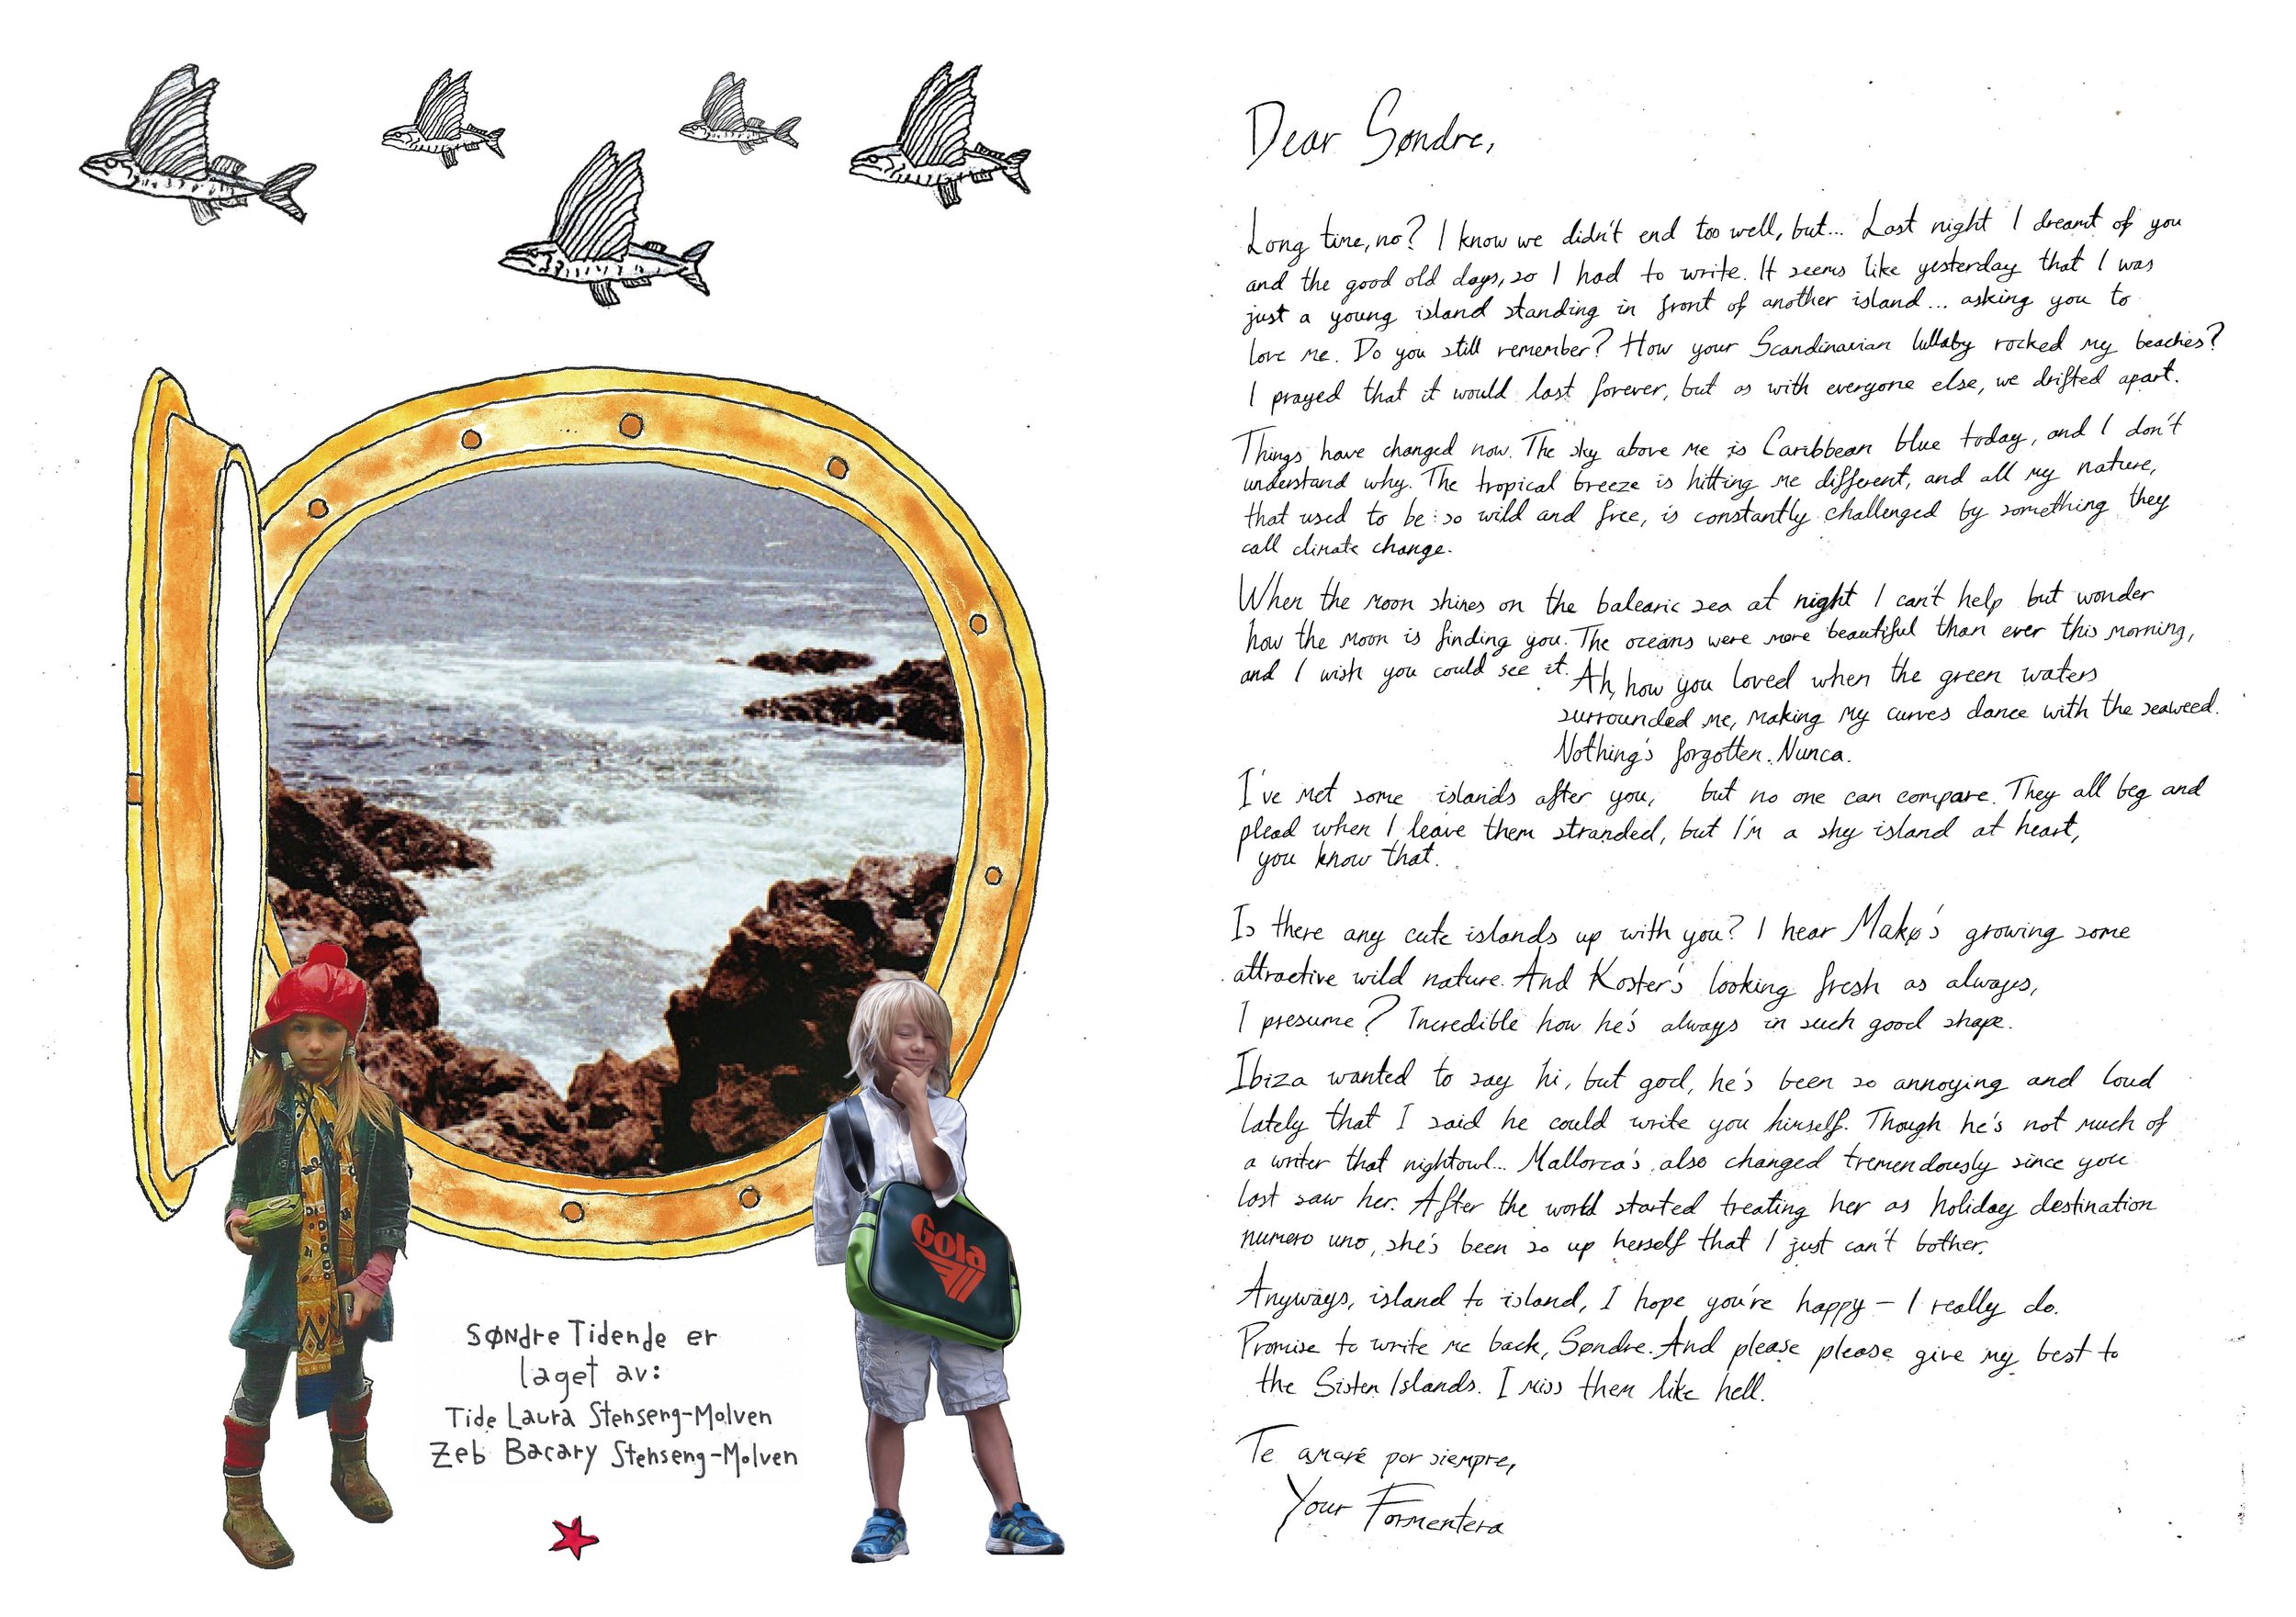 Gola
SøNdre Tidende er
laget av:
Tide Laura Stenseng-Molven
Zeb Bacary Stenseng-Molven
Dear Søndre,
Long time, no? I know we didn't end too well, but... Last night I dreamt of you
and the good old days, so I had to write. It seems like yesterday that I was
just a young island standing in front of another island... asking you to
love me. Do you still remember? How your Scandinavian lullaby rocked my beaches?
I prayed that it would last forever, but as with everyone else, we drifted apart.
Things have changed now. The sky above me is Caribbean blue today, and I don't
understand why. The tropical breeze is hitting me different, and all my nature,
that used to be so wild and free, is constantly challenged by something they
call climate change.
When the moon shines on the balearic sea at night I can't help but wonder
how the moon is finding you. The oceans were more beautiful than ever this morning,
and I wish you could see it. Ah, how you loved when the green waters
surrounded me, making my curves dance with the seaweed.
Nothing's forgotten. Nunca.
I've met some islands after you, but no one can compare. They all beg and
plead when I leave them stranded, but I'm a shy island at heart,
you know that.
Is there any cute islands up with you? I hear Makø's growing some
attractive wild nature. And Koster's looking fresh as always,
I presume? Incredible how he's always in such good shape.
Ibiza wanted to say hi, but god, he's been so annoying and loud
lately that I said he could write you himself. Though he's not much of
a writer that nightowl... Mallorca's also changed tremendously since you
last saw her. After the world started treating her as holiday destination
numero uno, she's been so up herself that I just can't bother.
Anyways, island to island, I hope you're happy – I really do.
Promise to write me back, Søndre. And please please give my best to
the Sister Islands. I miss them like hell.
Te amaré por siempre,
Your Formentera